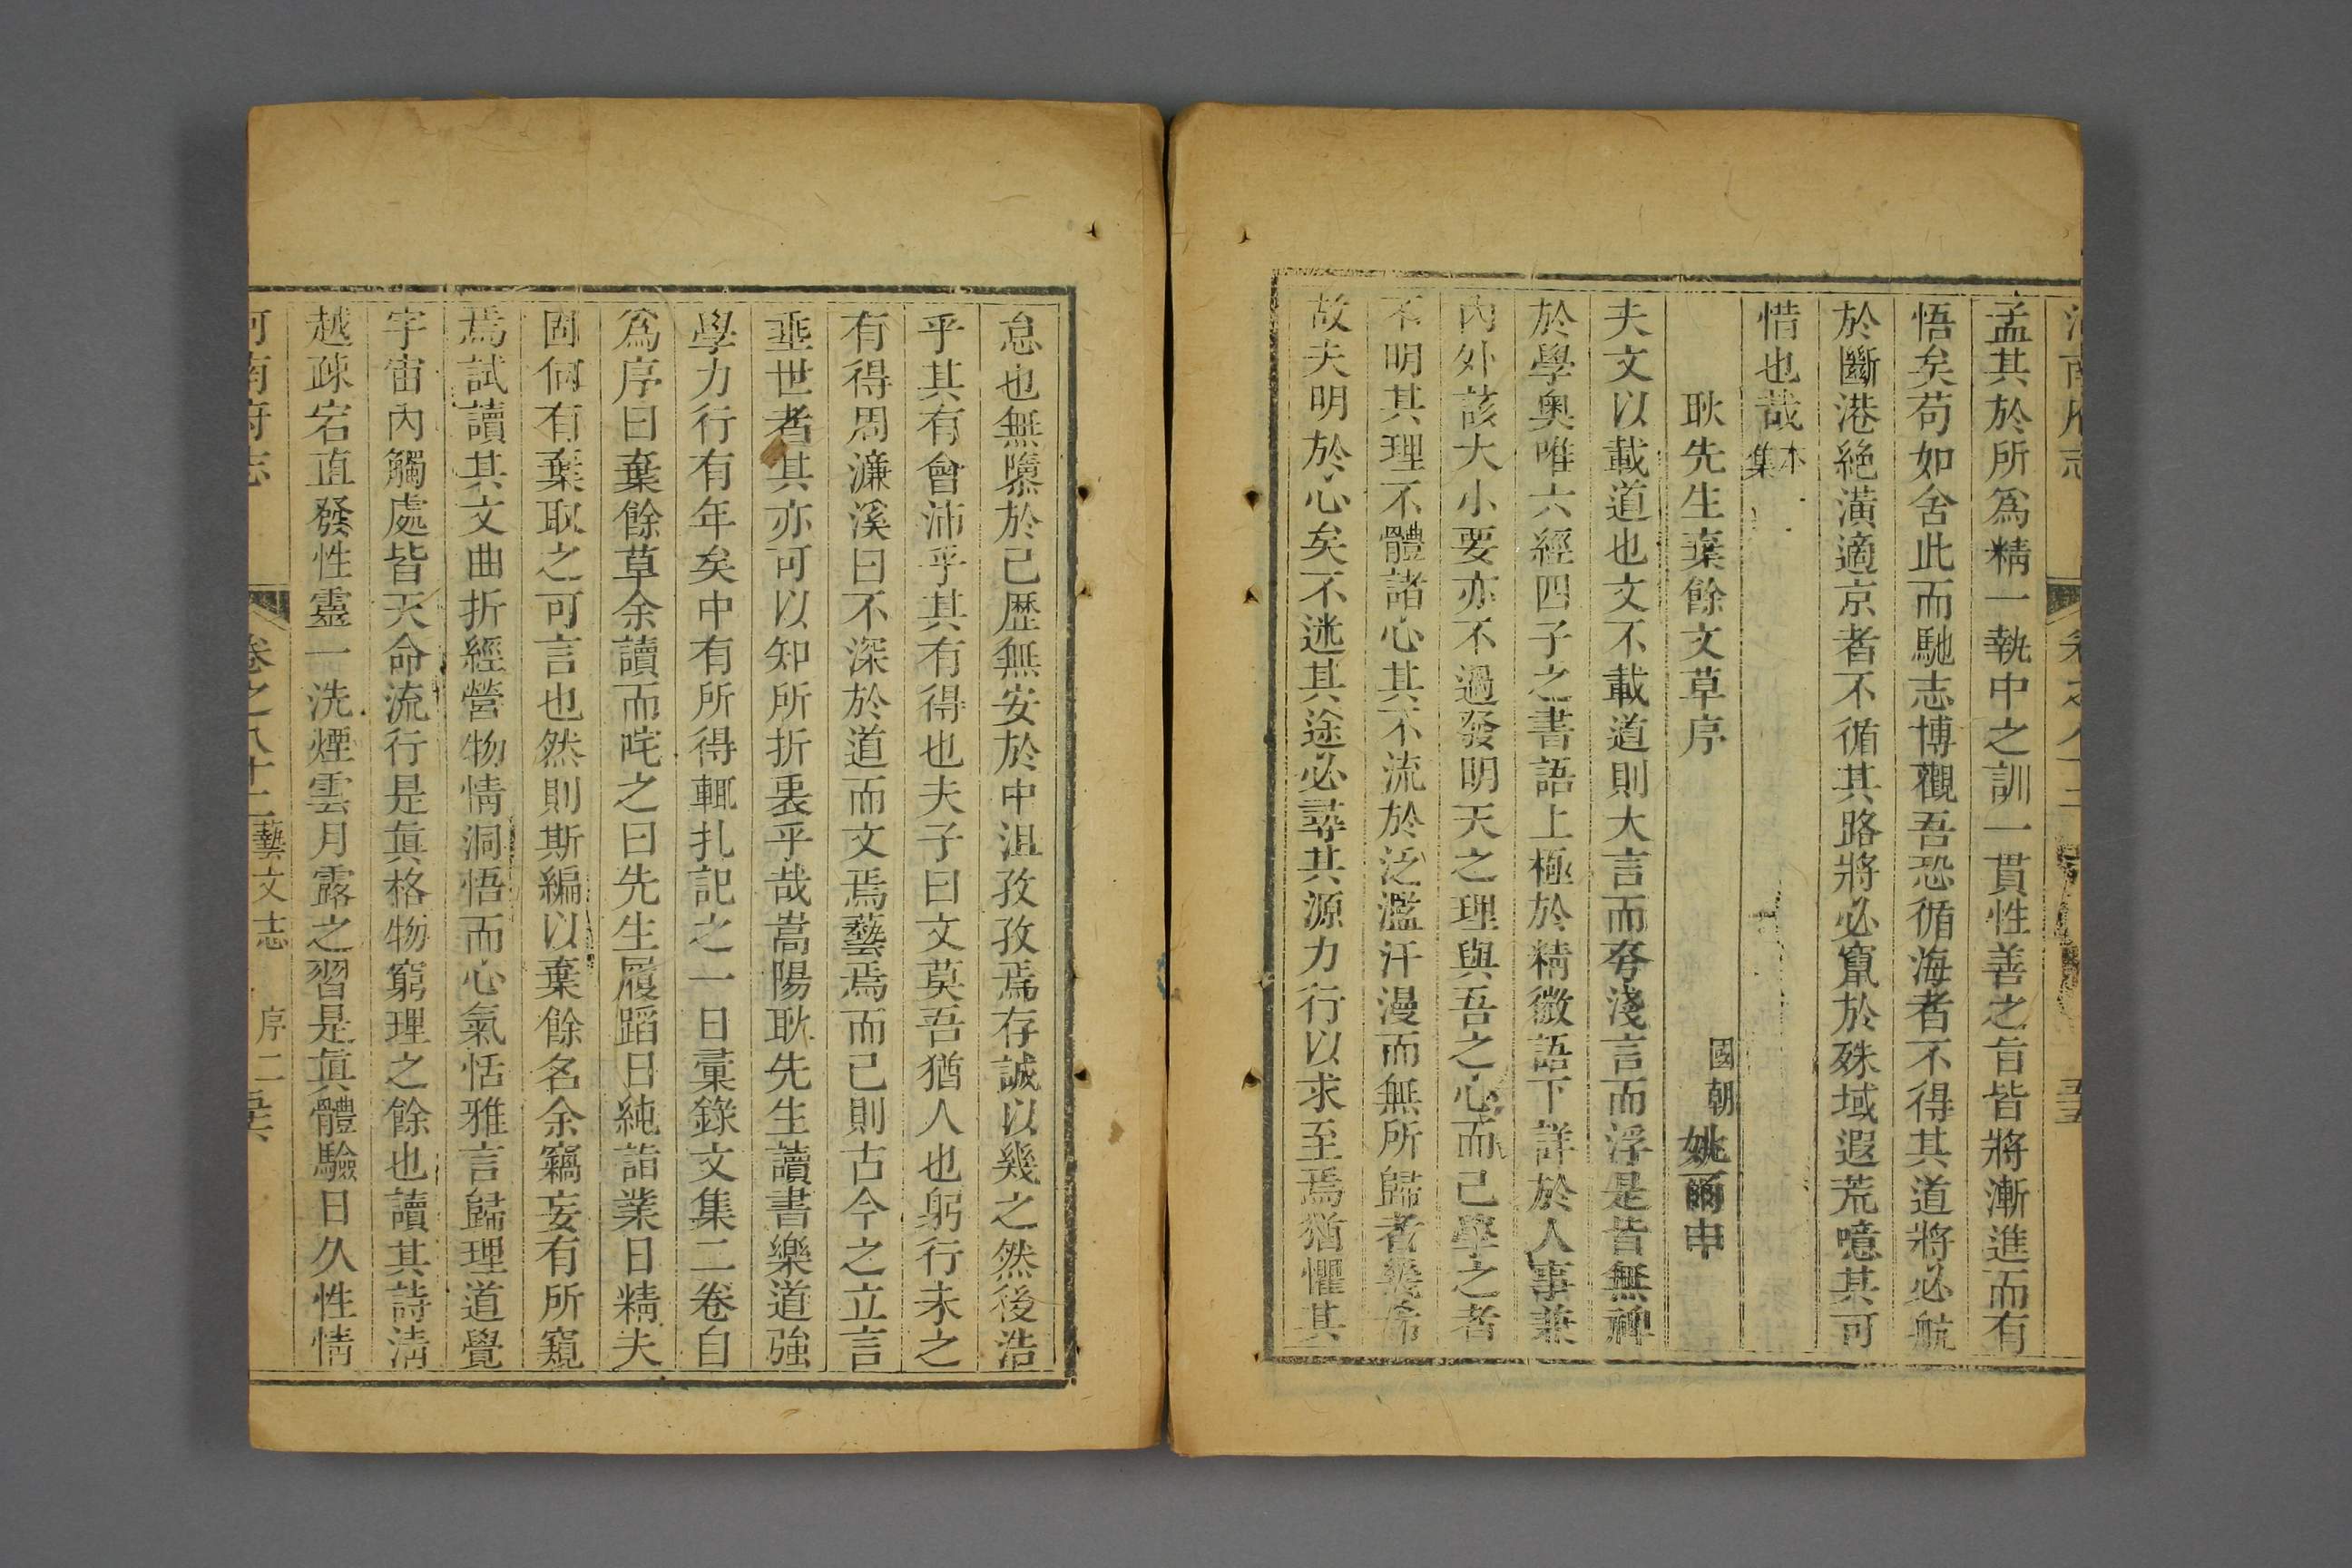 孟其於所爲精一執中之訓一貫性善之旨皆將漸進而有
悟矣苟如舍此而馳志博觀吾恐循海者不得其道將必航
於斷港絶潢適京者不循其路將必竄於殊域遐荒噫其可
惜也哉本集
耿先生棄餘文草序
國朝姚爾申
夫文以載道也文不載道則大言而夸淺言而浮是皆無裨
於學奥唯六經四子之書語上極於精微語下詳於人事兼
内外該大小要亦不過發明天之理與吾之心而已學之者
不明其理不體諸心其不流於泛濫汗漫而無所歸者幾希
故夫明於心矣不迷其途必尋其源力行以求至焉猶懼其
怠也無隳於已歴無安於中沮孜孜焉存誠以幾之然後浩
乎其有會沛乎其有得也夫子曰文莫吾猶人也躬行未之
有得周濂溪曰不深於道而文焉藝焉而已則古今之立言
垂世者其亦可以知所折衷乎哉嵩陽耿先生讀書樂道強
學力行有年矣中有所得輒扎記之一日彚錄文集二卷自
爲序曰棄餘草余讀而咤之曰先生履蹈日純詣業日精夫
固何有棄取之可言也然則斯編以棄餘名余竊妄有所窺
焉試讀其文曲折經營物情洞悟而心氣恬雅言歸理道覺
宇宙內觸處皆天命流行是眞格物窮理之餘也讀其詩淸
越疎宕直發性靈一洗煙雲月露之習是眞體驗日久性情
河南府志 卷之八十二藝文志 序二 五六